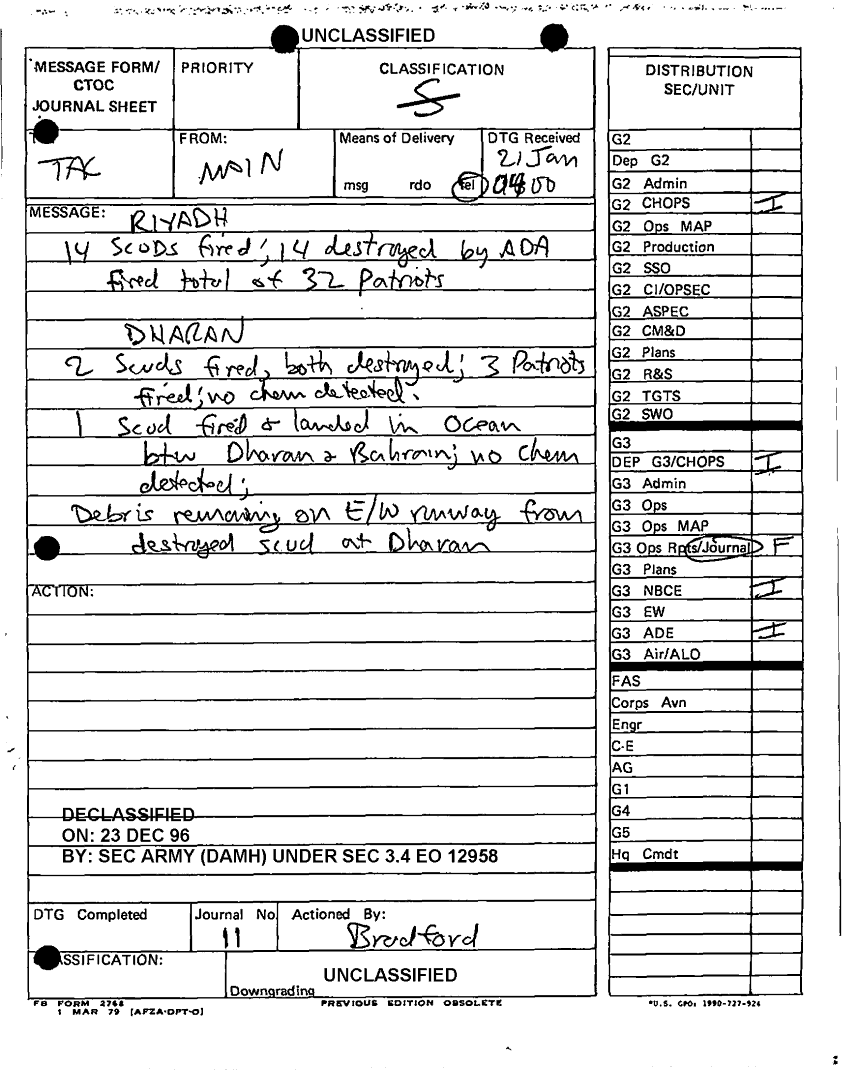 UNCLASSIFIED
MESSAGE FORM/
CTOC
JOURNAL SHEET
PRIORITY
CLASSIFICATION
S
TAC
FROM:
MAIN
Means of Delivery
msg rdo tel
DTG Received
21 Jan
MESSAGE:
RIYADH
14 SCUDs fired; 14 destroyed by ADA
fired total of 32 Patriots
DHARAN
2 Scuds fired, both destroyed; 3 Patriots
fired; no chem detected.
1 Scud fired & landed in Ocean
btw Dharan & Bahrain; no chem
detected;
Debris remaining on E/W runway from
destroyed scud at Dharan
ACTION:
DECLASSIFIED
ON: 23 DEC 96
BY: SEC ARMY (DAMH) UNDER SEC 3.4 EO 12958
DTG Completed
Journal No.
11
Actioned By:
Bradford
ASSIFICATION:
UNCLASSIFIED
Downgrading
FB FORM 2768
1 MAR 79 [AFZA-DPT-O]
PREVIOUS EDITION OBSOLETE
DISTRIBUTION
SEC/UNIT
G2
Dep G2
G2 Admin
G2 CHOPS I
G2 Ops MAP
G2 Production
G2 SSO
G2 CI/OPSEC
G2 ASPEC
G2 CM&D
G2 Plans
G2 R&S
G2 TGTS
G2 SWO
G3
DEP G3/CHOPS I
G3 Admin
G3 Ops
G3 Ops MAP
G3 Ops Rpts/Journal F
G3 Plans
G3 NBCE I
G3 EW
G3 ADE I
G3 Air/ALO
FAS
Corps Avn
Engr
C-E
AG
G1
G4
G5
Hq Cmdt
*U.S. GPO: 1990-727-926